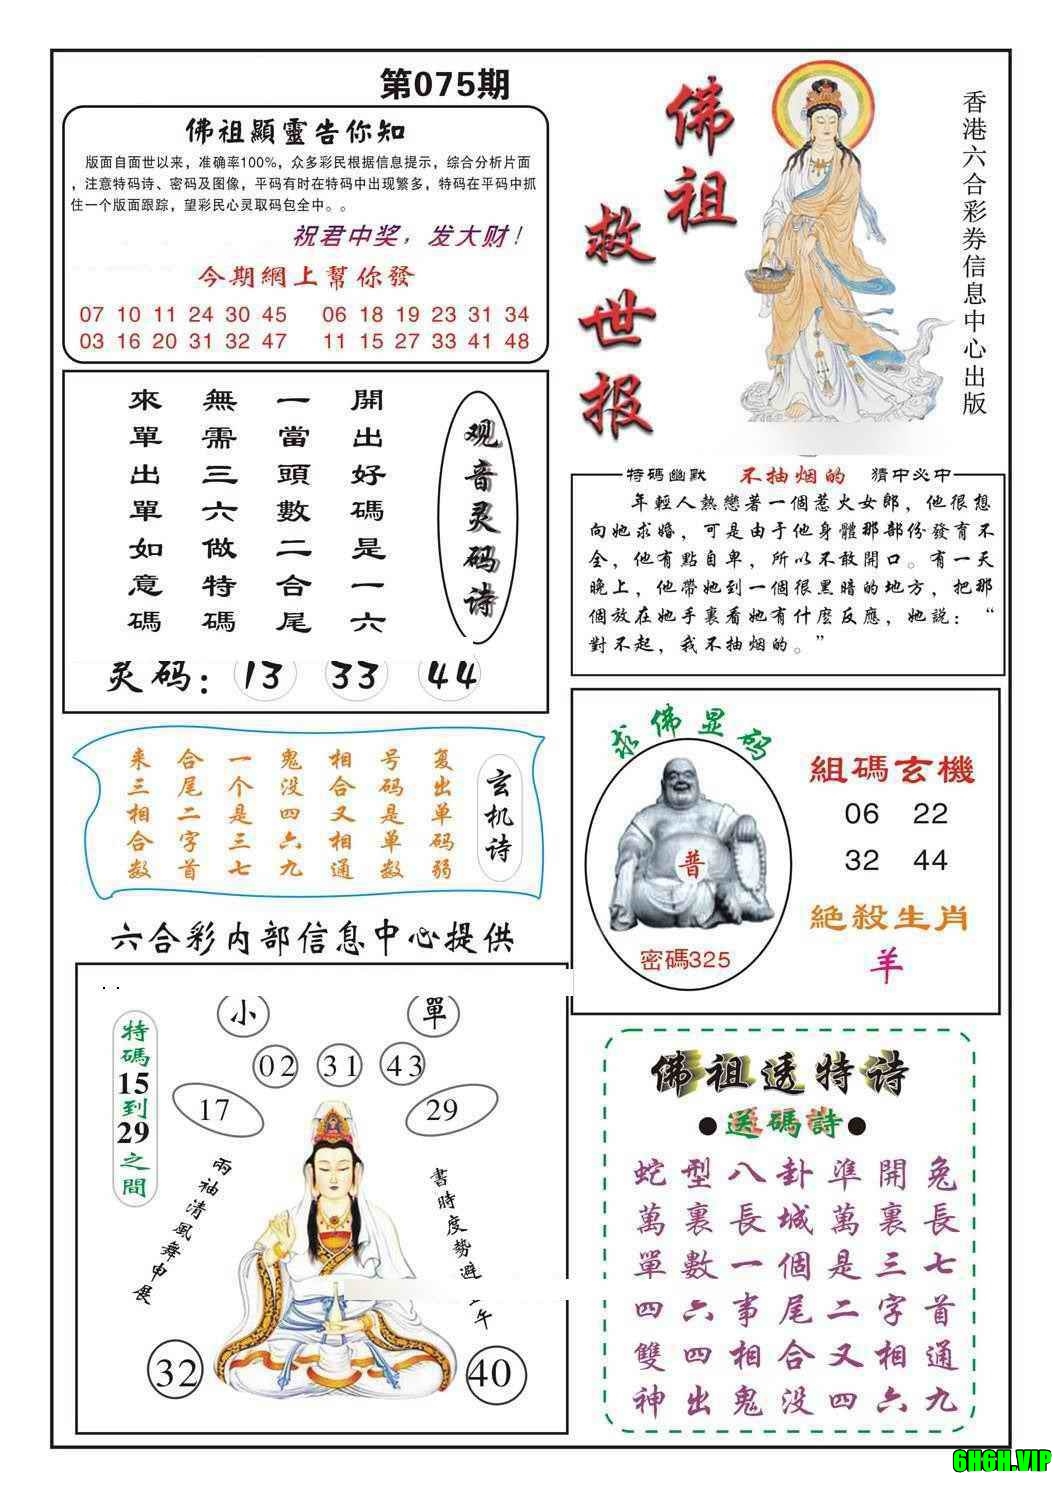 第075期
佛祖顯靈告你知
版面自面世以来，准确率100%，众多彩民根据信息提示，综合分析片面
，注意特码诗、密码及图像，平码有时在特码中出现繁多，特码在平码中抓
住一个版面跟踪，望彩民心灵取码包全中。。
祝君中奖，发大财！
今期網上幫你發
07 10 11 24 30 45 06 18 19 23 31 34
03 16 20 31 32 47 11 15 27 33 41 48
佛祖
救世报
香港六合彩券信息中心出版
观音灵码诗
開出好碼是一六
一當頭數二合尾
無需三六做特碼
來單出單如意碼
灵码：13 33 44
特碼幽默 不抽烟的 猜中必中
年輕人熱戀著一個惹火女郎，他很想
向她求婚，可是由于他身體那部份發育不
全，他有點自卑，所以不敢開口。有一天
晚上，他帶她到一個很黑暗的地方，把那
個放在她手裏看她有什麼反應，她説：“
對不起，我不抽烟的。”
玄机诗
复出单码弱
号码是单数
相合又相通
鬼没四六九
一个是三七
合尾二字首
来三相合数
求佛显码
普
密碼325
組碼玄機
06 22
32 44
絕殺生肖
羊
六合彩内部信息中心提供
小 單
02 31 43
17 29
特碼15到29之間
兩袖清風舞申展
書時度勢避
午
32 40
佛祖透特诗
●送碼詩●
蛇型八卦準開兔
萬裏長城萬裏長
單數一個是三七
四六事尾二字首
雙四相合又相通
神出鬼没四六九
6H6H.VIP